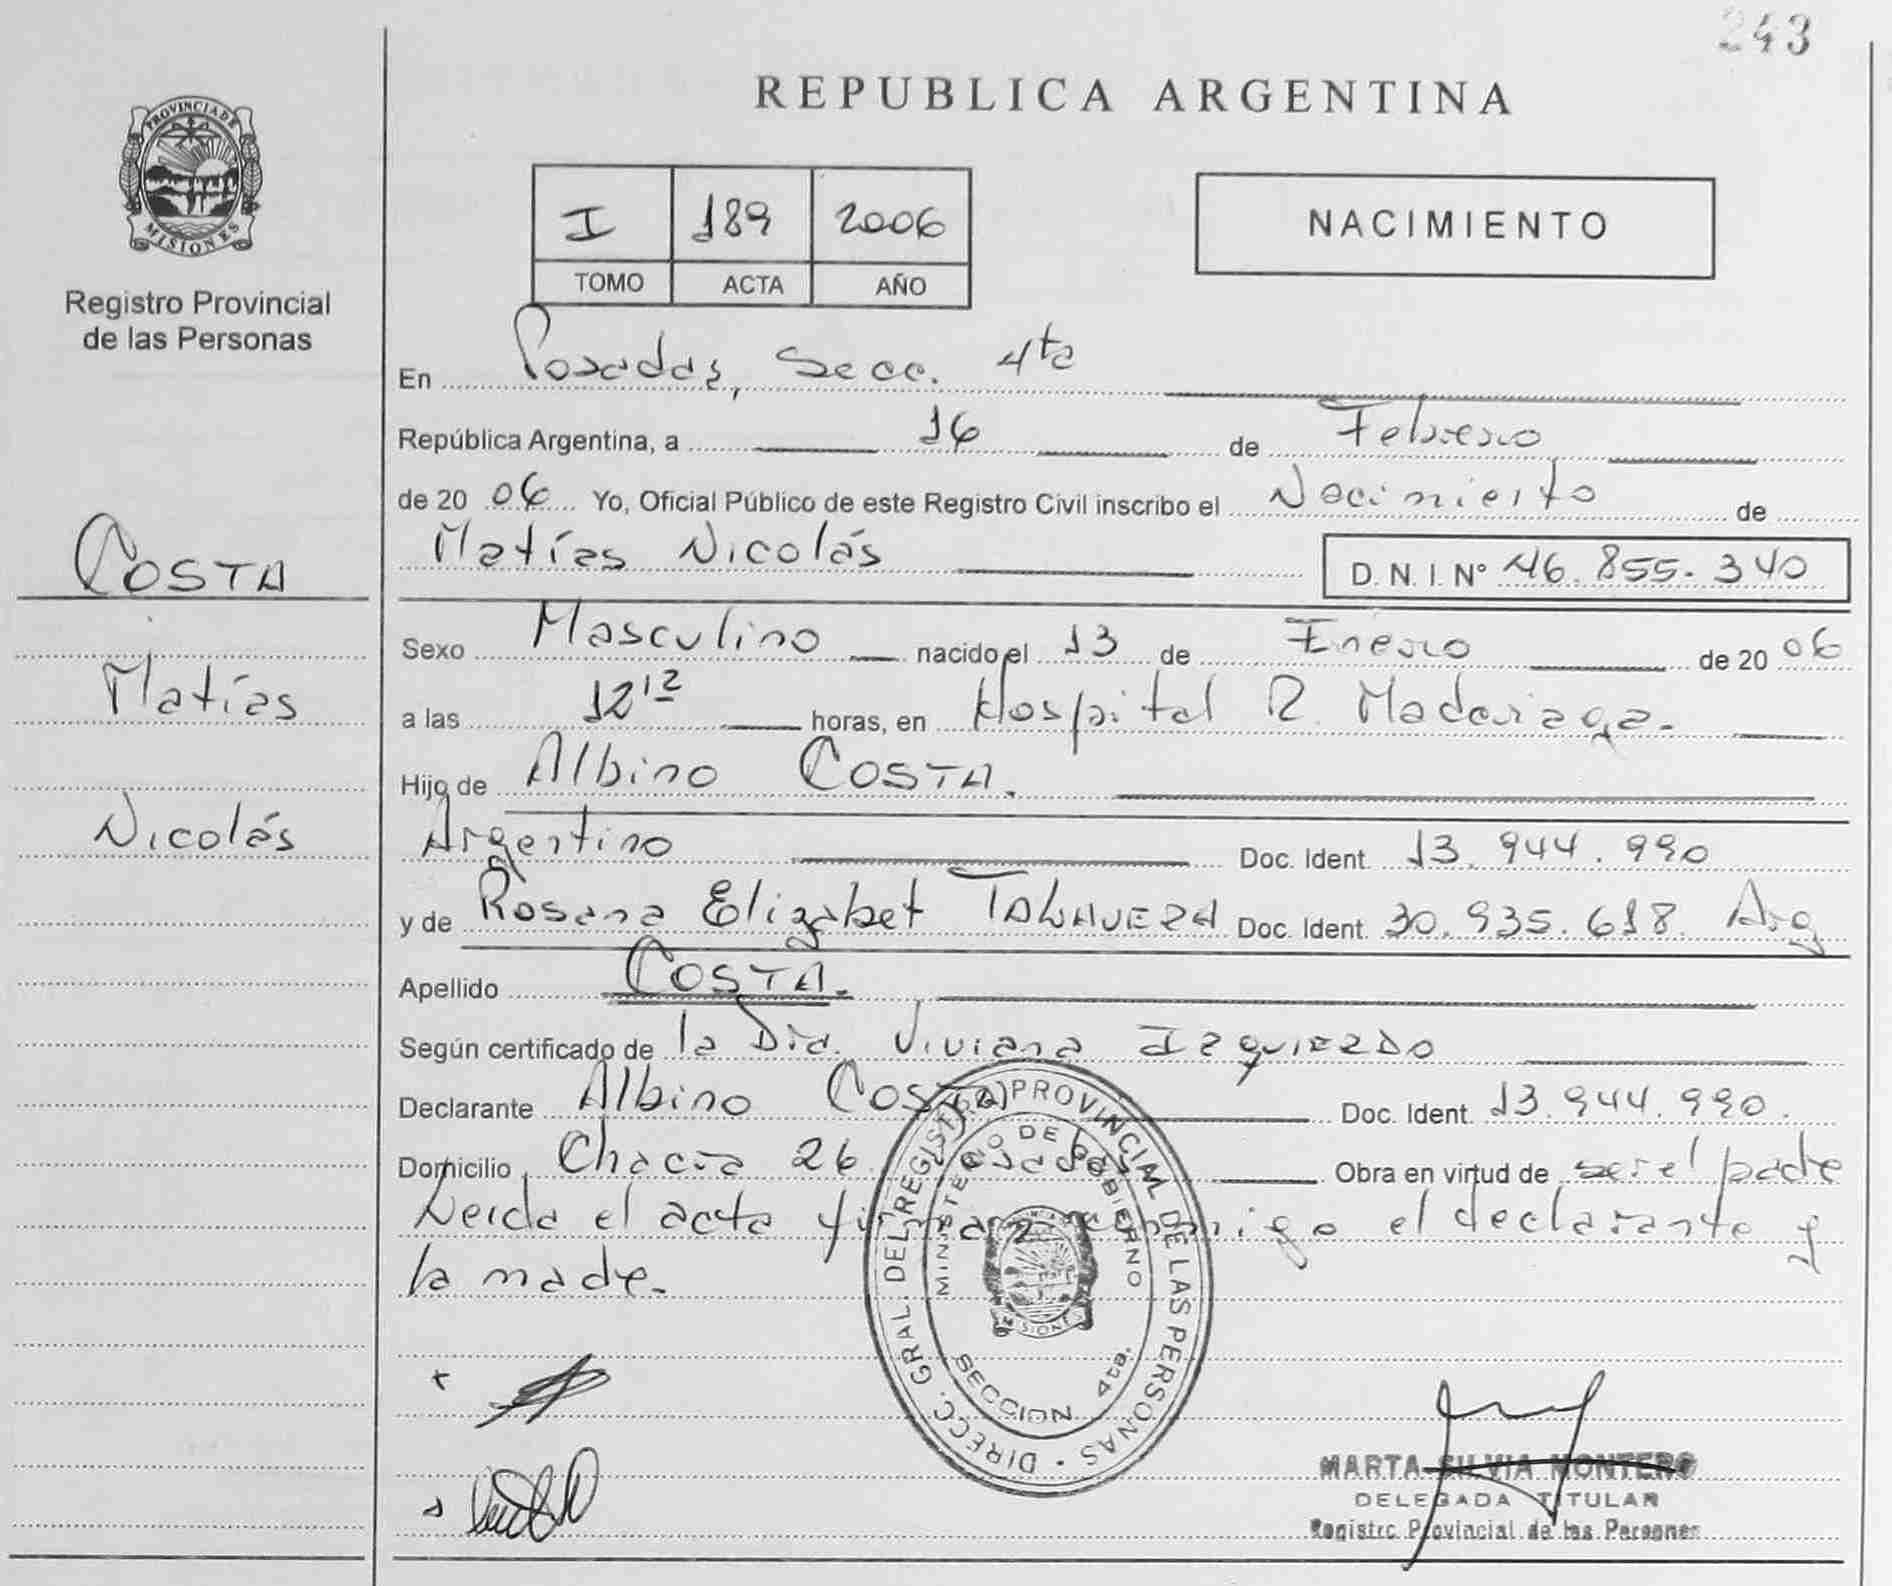 243
REPUBLICA ARGENTINA
PROVINCIA DE
MISIONES
Registro Provincial
de las Personas
I 189 2006
TOMO ACTA AÑO
NACIMIENTO
En Posadas, Secc. 4ta
República Argentina, a 16 de Febrero
de 20 06 Yo, Oficial Público de este Registro Civil inscribo el Nacimiento de
Matías Nicolás D.N.I. N° 46.855.340
COSTA
Matías
Nicolás
Sexo Masculino nacido el 13 de Enero de 20 06
a las 12 12 horas, en Hospital R. Madariaga.
Hijo de Albino COSTA.
Argentino Doc. Ident. 13.944.990
y de Rosana Elizabet TALAVERA Doc. Ident. 30.935.618. Arg
Apellido COSTA.
Según certificado de la Dra. Viviana IZQUIERDO
Declarante Albino COSTA Doc. Ident. 13.944.990.
Domicilio Chacra 26. Posadas Obra en virtud de ser el padre
Leida el acta firman conmigo el declarante y
la madre.
DIRECC. GRAL. DEL REGISTRO PROVINCIAL DE LAS PERSONAS
MINISTERIO DE GOBIERNO
MISIONES
SECCION 4ta.
MARTA SILVIA MONTERO
DELEGADA TITULAR
Registro Provincial de las Personas